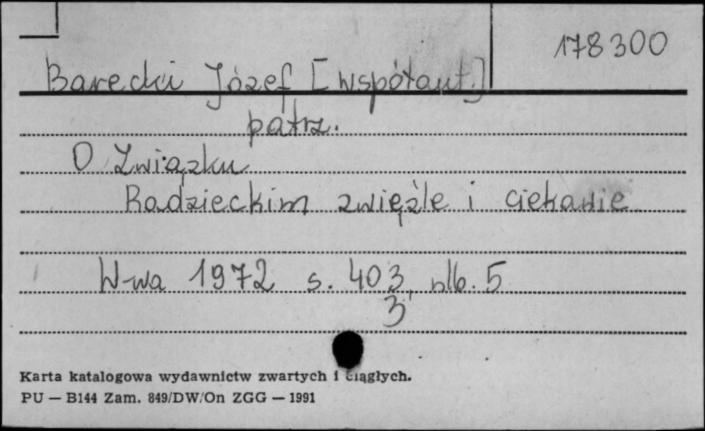 178300
Barecki Józef [współaut.]
patrz.
O Związku
Radzieckim zwięźle i ciekawie
W-wa 1972 s. 403, nlb. 5
3
Karta katalogowa wydawnictw zwartych i ciągłych.
PU — B144 Zam. 849/DW/On ZGG — 1991